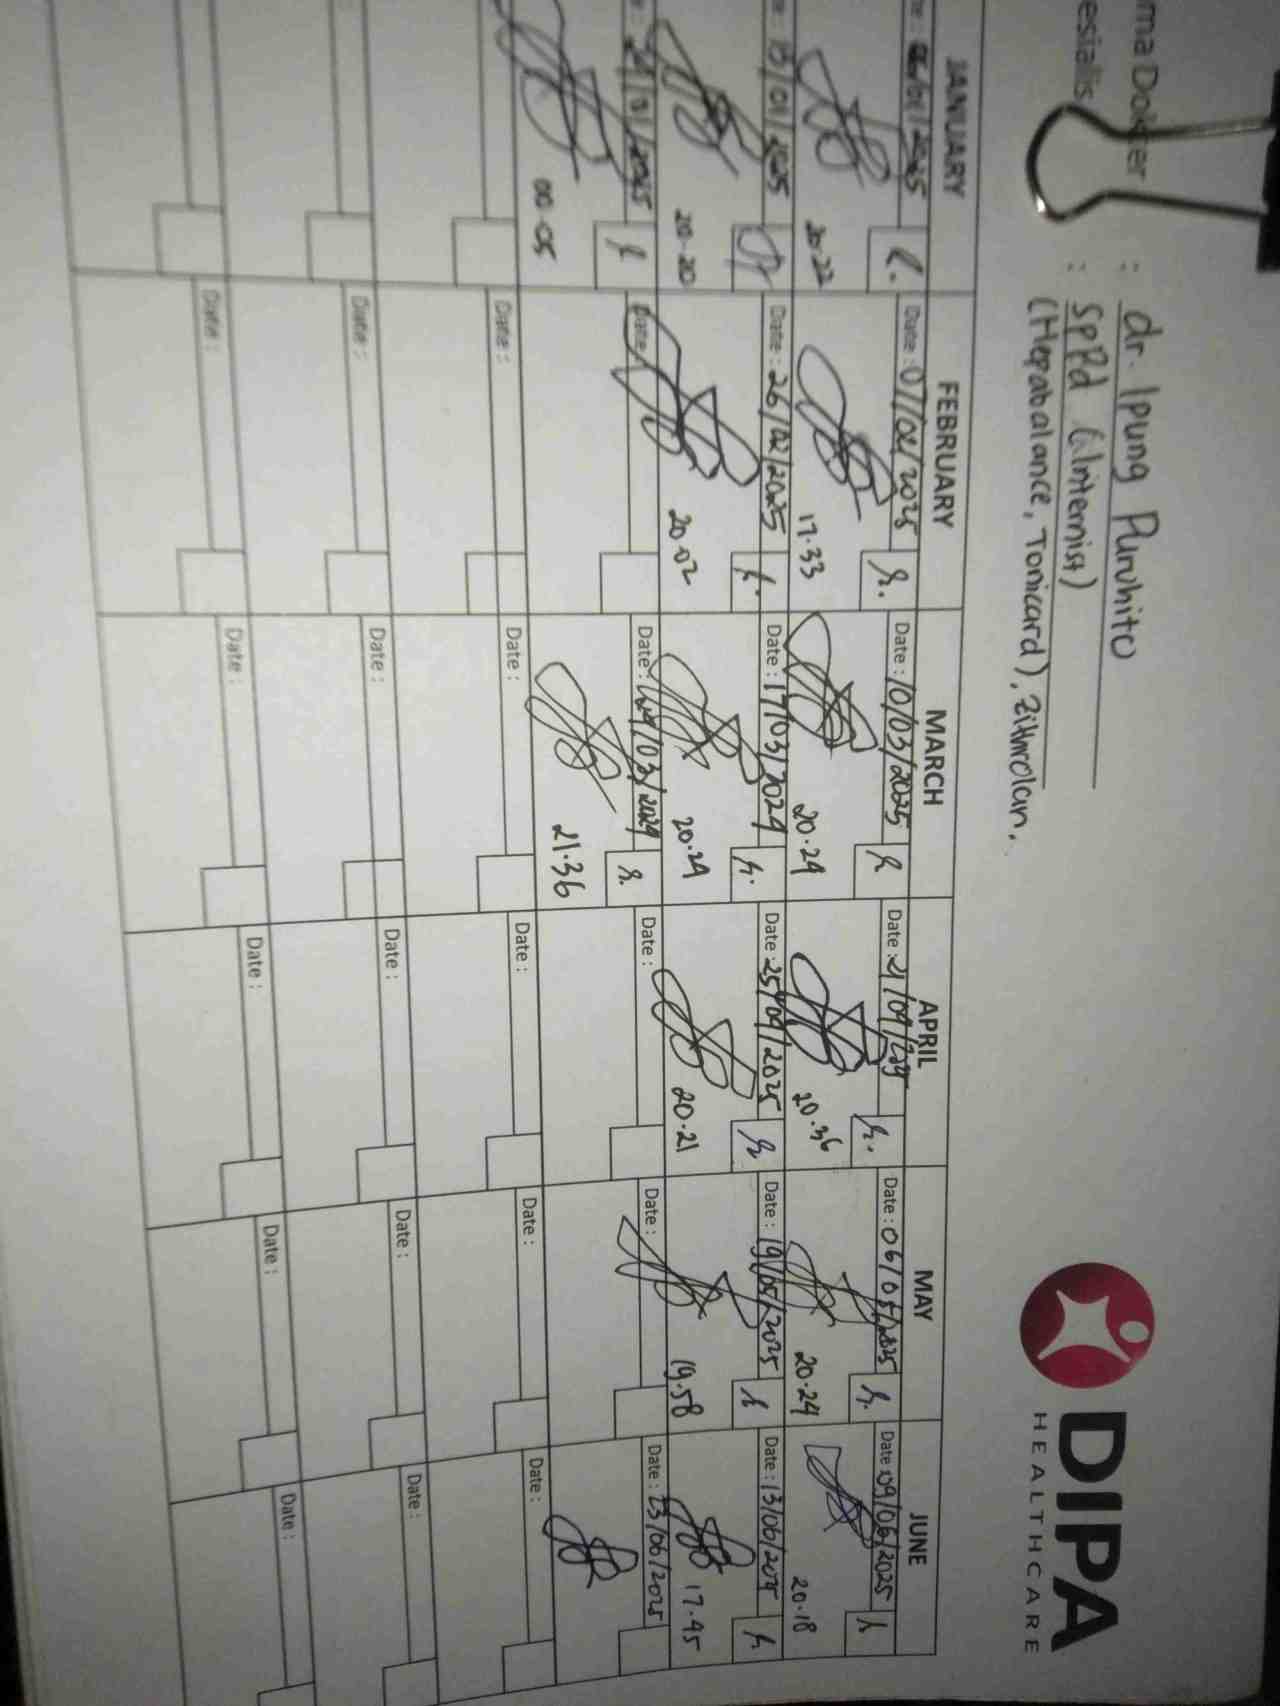 DIPA
HEALTHCARE
ma Dokter : dr. Ipung Puruhito
esialis : SpPd (Internist)
(Hepabalance, Tonicard), Zithrolan.
JANUARY FEBRUARY MARCH APRIL MAY JUNE
/01/2025 Date : 07/02/2025 Date : 10/03/2025 Date : 21/04/ Date : 06/05/2025 Date : 09/06/2025
20.22 17.33 20.24 20.36 20.24 20.18
13/01/2025 Date : 26/02/2025 Date : 17/03/2024 Date : 25/04/2025 Date : 19/05/2025 Date : 13/06/2025
20.20 20.02 20.24 20.21 19.58 17.45
/01/2025 Date : Date : /03/2024 Date : Date : Date : 23/06/2025
00.05 21.36
Date : Date : Date : Date : Date :
Date : Date : Date : Date : Date :
Date : Date : Date : Date : Date :